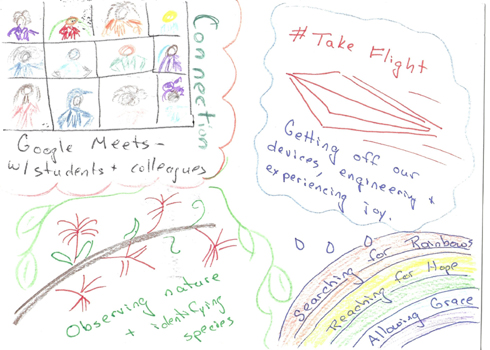 Connection
Google Meets -
w/students + colleagues
# Take Flight
Getting off our
devices, engineering +
experiencing joy.
Observing nature
+ identifying
species
Searching for Rainbows
Reaching for Hope
Allowing Grace